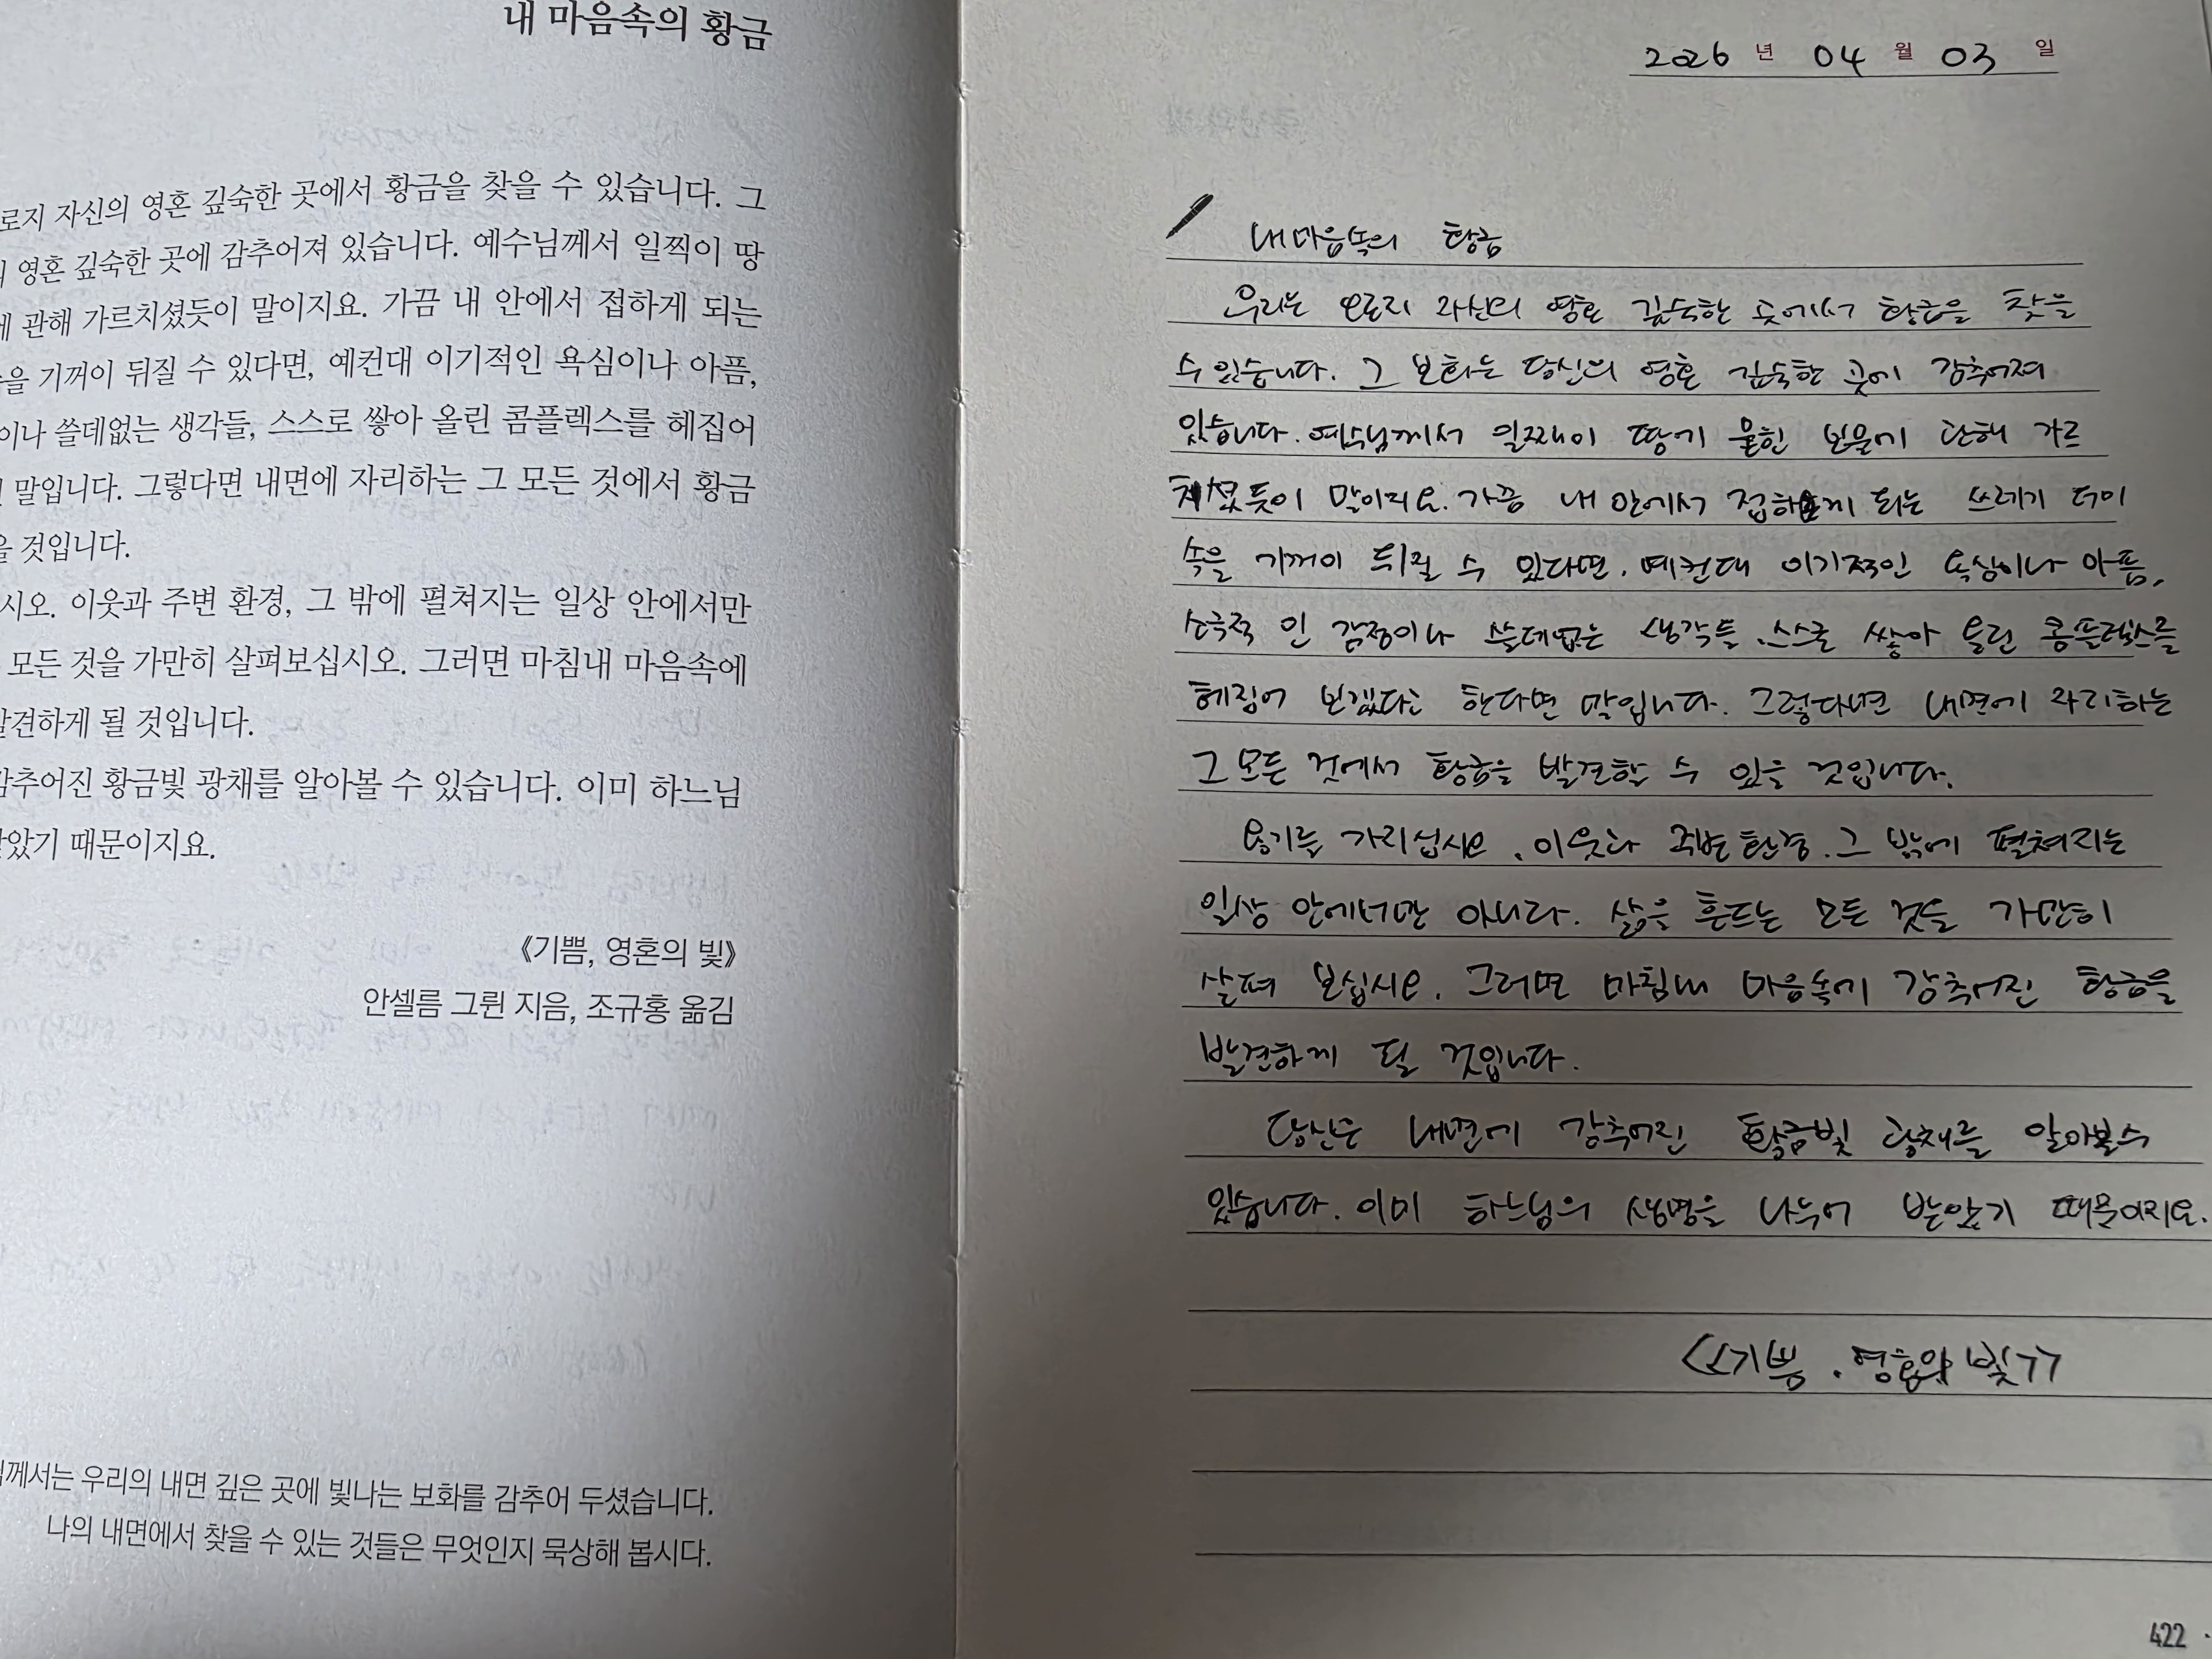 내 마음속의 황금
로지 자신의 영혼 깊숙한 곳에서 황금을 찾을 수 있습니다. 그
영혼 깊숙한 곳에 감추어져 있습니다. 예수님께서 일찍이 땅
에 관해 가르치셨듯이 말이지요. 가끔 내 안에서 접하게 되는
을 기꺼이 뒤질 수 있다면, 예컨대 이기적인 욕심이나 아픔,
이나 쓸데없는 생각들, 스스로 쌓아 올린 콤플렉스를 헤집어
말입니다. 그렇다면 내면에 자리하는 그 모든 것에서 황금
을 것입니다.
시오. 이웃과 주변 환경, 그 밖에 펼쳐지는 일상 안에서만
모든 것을 가만히 살펴보십시오. 그러면 마침내 마음속에
발견하게 될 것입니다.
감추어진 황금빛 광채를 알아볼 수 있습니다. 이미 하느님
받았기 때문이지요.
《기쁨, 영혼의 빛》
안셀름 그륀 지음, 조규홍 옮김
님께서는 우리의 내면 깊은 곳에 빛나는 보화를 감추어 두셨습니다.
나의 내면에서 찾을 수 있는 것들은 무엇인지 묵상해 봅시다.
2026 년 04 월 03 일
내 마음속의 황금
우리는 오로지 자신의 영혼 깊숙한 곳에서 황금을 찾을
수 있습니다. 그 보화는 당신의 영혼 깊숙한 곳에 감추어져
있습니다. 예수님께서 일찍이 땅에 묻힌 보물에 관해 가르
치셨듯이 말이지요. 가끔 내 안에서 접하게 되는 쓰레기 더미
속을 기꺼이 뒤질 수 있다면, 예컨대 이기적인 욕심이나 아픔,
소극적 인 감정이나 쓸데없는 생각들, 스스로 쌓아 올린 콤플렉스를
헤집어 보겠다는 한다면 말입니다. 그렇다면 내면에 자리하는
그 모든 것에서 황금을 발견할 수 있을 것입니다.
용기를 가지십시오. 이웃과 주변 환경, 그 밖에 펼쳐지는
일상 안에서만 아니라, 삶을 흔드는 모든 것을 가만히
살펴 보십시오. 그러면 마침내 마음속에 감추어진 황금을
발견하게 될 것입니다.
당신은 내면에 감추어진 황금빛 광채를 알아볼 수
있습니다. 이미 하느님의 생명을 나누어 받았기 때문이지요.
<<기쁨, 영혼의 빛>>
422